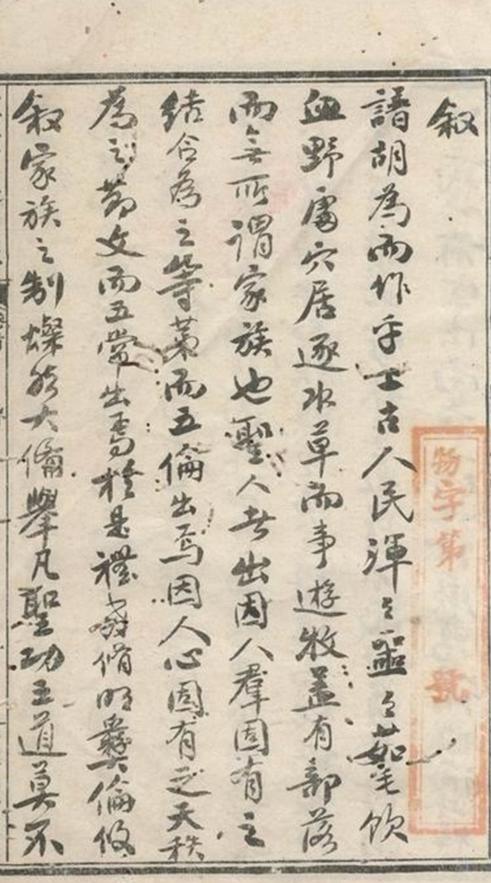 叙
譜胡為而作乎上古人民渾々噩々茹毛飲
血野處穴居逐水草而事遊牧蓋有部落
而無所謂家族也聖人者出因人羣固有之
結合為之等第而五倫出焉因人心固有之天秩
為之節文而五常出焉於是禮教脩明彝倫攸
叙家族之制燦然大備舉凡聖功王道莫不
物字第 號